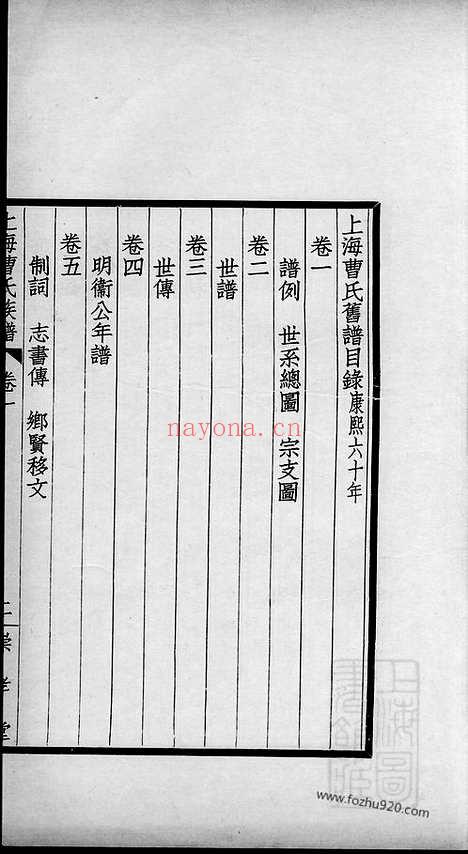 上海曹氏舊譜目錄康熙六十年
卷一
譜例 世系總圖 宗支圖
卷二
世譜
卷三
世傳
卷四
明衞公年譜
卷五
制詞 志書傳 鄉賢移文
上海曹氏族譜 卷一
崇孝堂
nayona.cn
上海圖
www.fozhu920.com